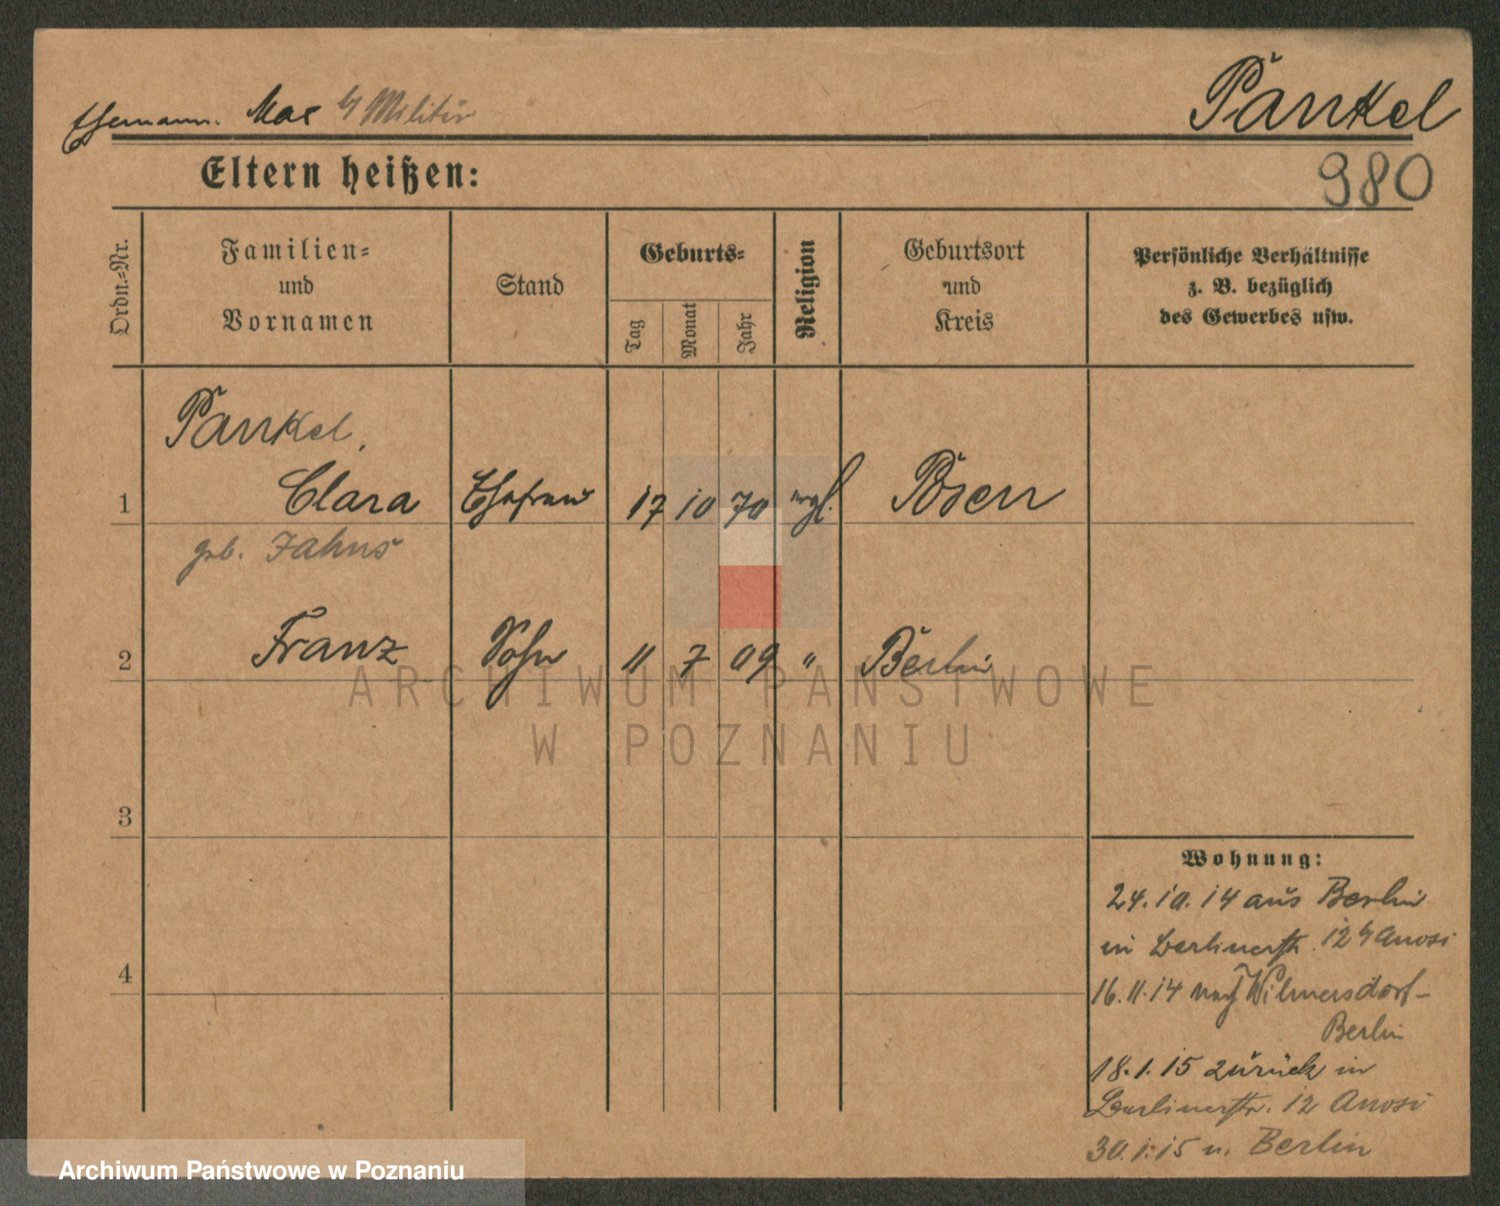 Ehemann. Max b/ Militär
Pankel
Eltern heißen:
980
Ordn.-Nr.
Familien-
und
Vornamen
Stand
Geburts-
Tag
Monat
Jahr
Religion
Geburtsort
und
Kreis
Persönliche Verhältnisse
z. B. bezüglich
des Gewerbes usw.
Pankel,
1 Clara Ehefrau 17 10 70 evgl. Posen
geb. Jahns
2 Franz Sohn 11 7 09 " Berlin
3
4
Wohnung:
24.10.14 aus Berlin
in Berlinerstr. 12 b/
16.11.14 nach Wilmersdorf-
Berlin
18.1.15 zurück in
Berlinerstr. 12
30.1.15 n. Berlin
ARCHIWUM PAŃSTWOWE
W POZNANIU
Archiwum Państwowe w Poznaniu